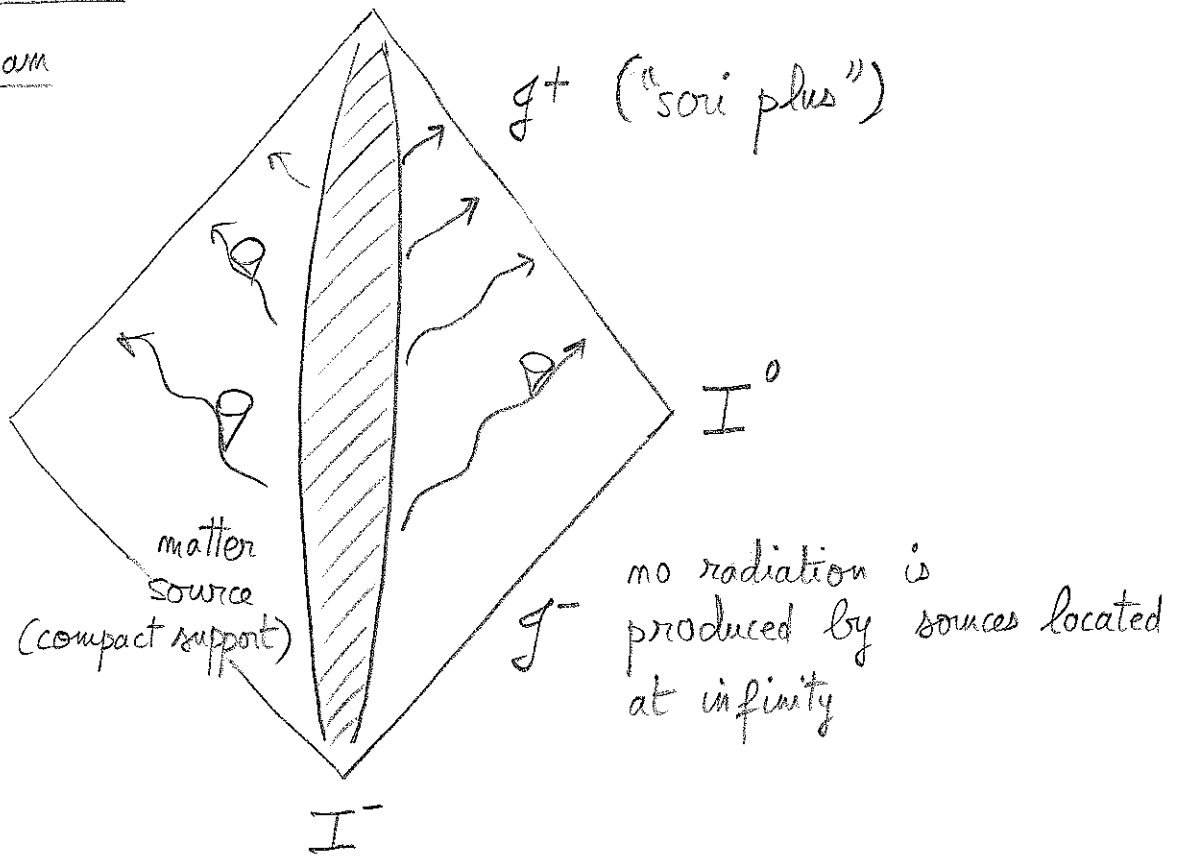 am
𝒥+ ("scri plus")
I⁰
matter
source
(compact support)
𝒥- no radiation is
produced by sources located
at infinity
I⁻